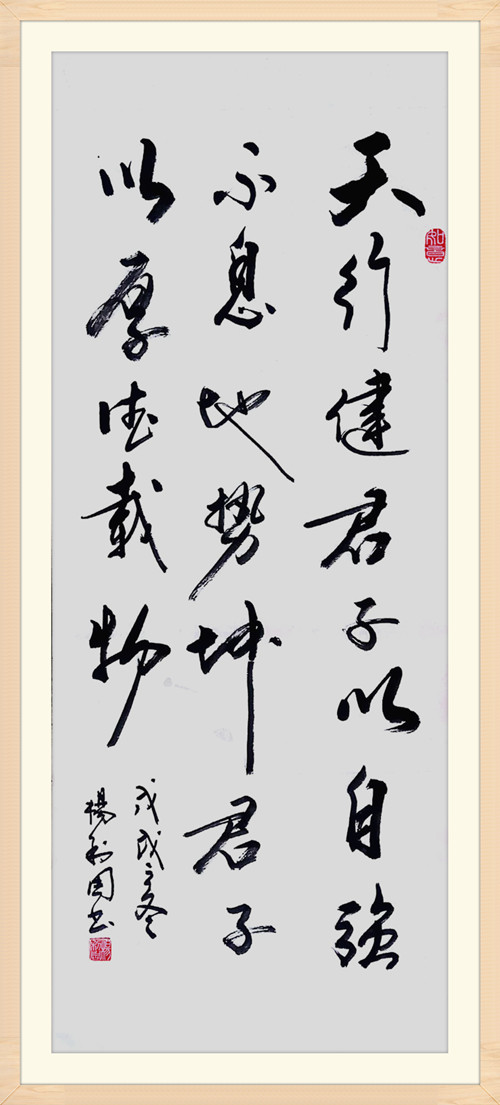 天行健君子以自強
不息地势坤君子
以厚德載物
戊戌冬
楊书